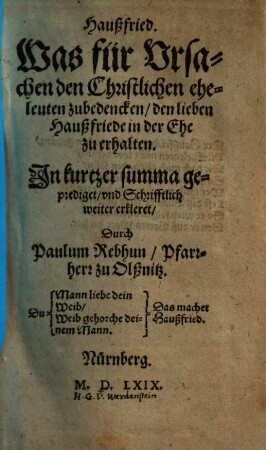 Haußfried.
Was für Vrsa-
chen den Christlichen ehe-
leuten zubedencken / den lieben
Haußfriede in der Ehe
zu erhalten.
In kurtzer summa ge-
prediget / vnd Schrifftlich
weiter erkleret /
Durch
Paulum Rebhun / Pfarr-
herr zu Olßnitz.
Du Mann liebe dein Weib / Weib gehorche dei- nem Mann. Das machet Haußfried.
Nürnberg.
M. D. LXIX.
H. G. V. Werdenstein